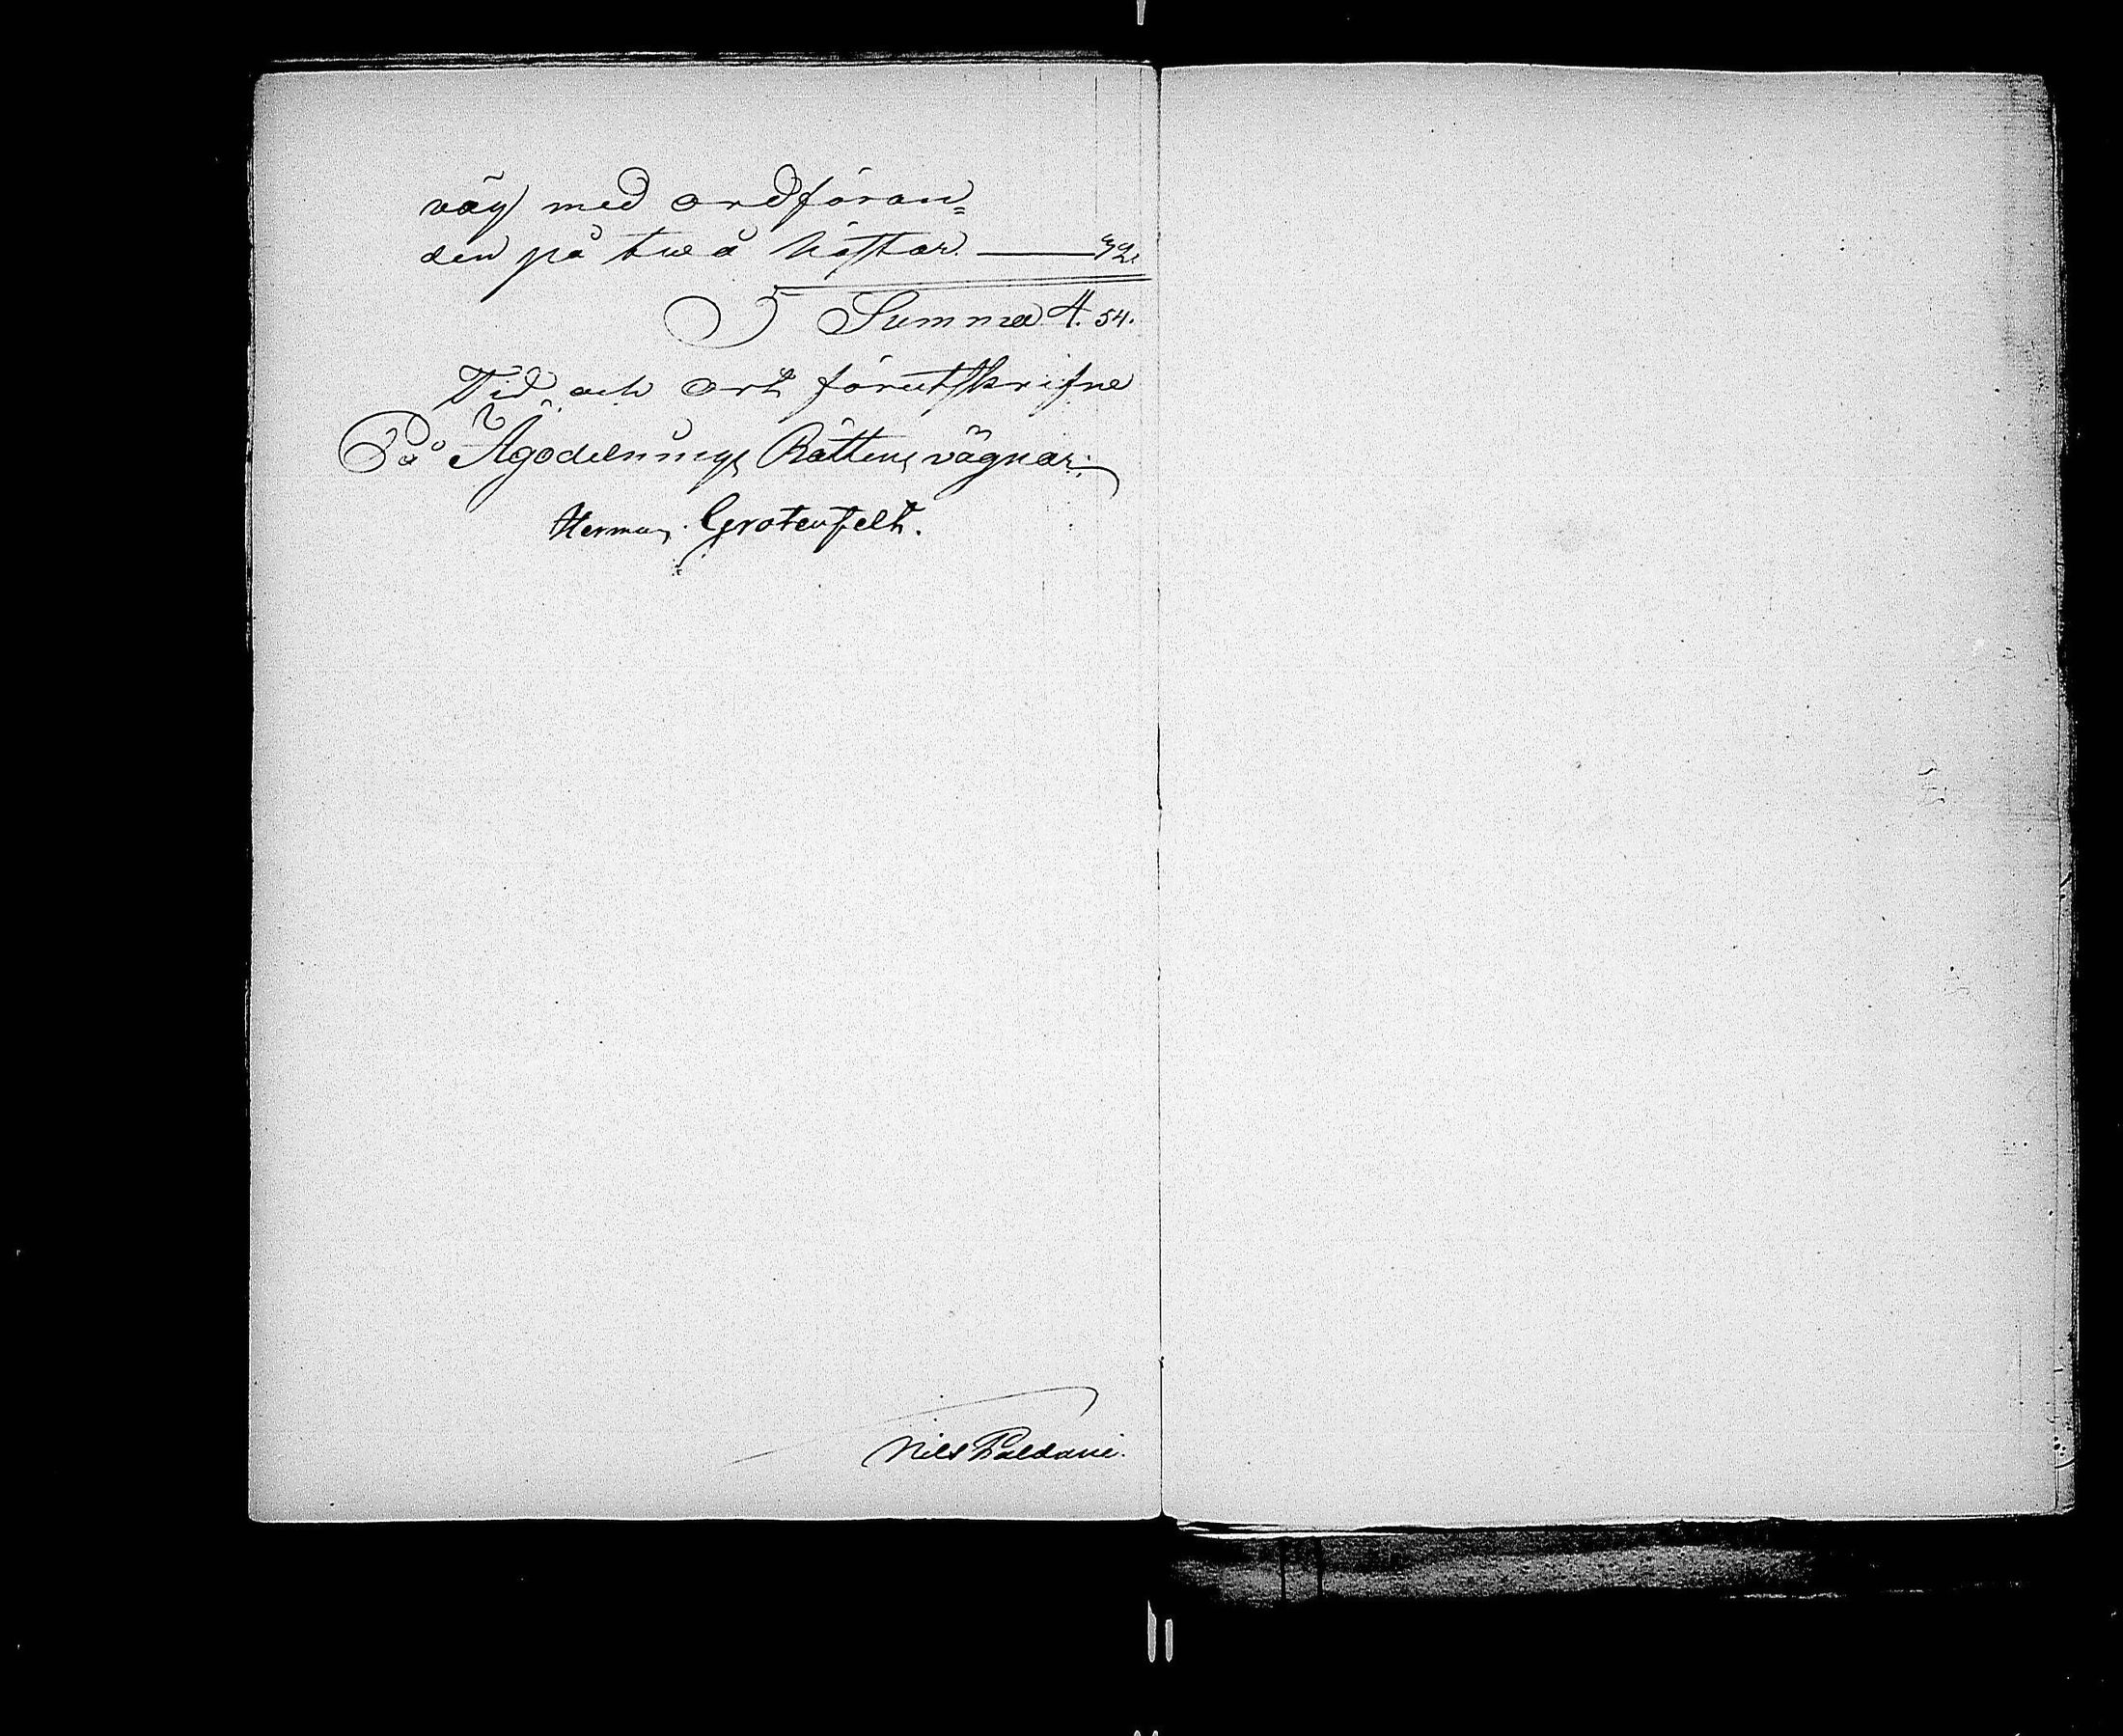 väg med ordföran=
den på två hästar. — 32.
Summa 4. 54.
Tid och ort förutskrifne
På Ägodelnings Rättens vägnar:
Herman Grotenfelt.
Nils Paldani.